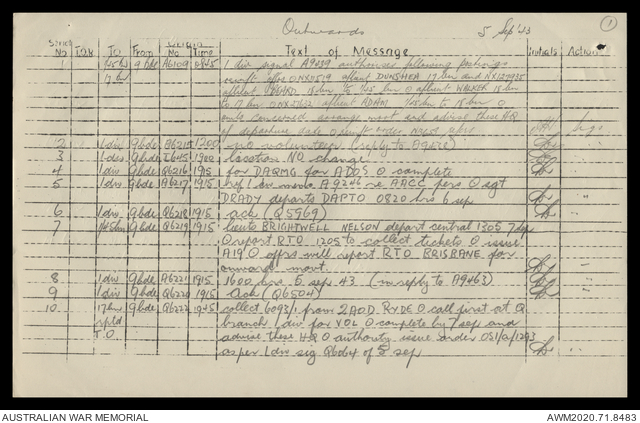 Outwards 5 Sep '43 1
Serial No T.O.R. To From Serial No Time Text of Message Initials Action
1 9 bde A6109 0845 1 div signal A9239 authorises following postings
17 bn NX127935
18 bn to 17 bn 0 NX7632 ADAM 18 bn 0
units concerned arrange movt and advise these HQ
of departure date
2 1 div 9 bde A6215 1200 no volunteers (reply to A9426)
3 1 div 9 bde I645 1902 location NO change
4 1 div 9 bde Q6216 1915 for DAQMG for ADOS O complete
5 1 div 9 bde A6217 1915 ref 1 div memo A9246 re AACC pers O sgt
DRADY departs DAPTO 0820 hrs 6 sep
6 1 div 9 bde Q6218 1915 ack (Q5969)
7 9 bde Q6219 1915 Lieuts BRIGHTWELL NELSON depart central 1305 7 sep
O report RTO 1205 to collect tickets O issue
A19 O offrs will report RTO BRISBANE for
onward movt.
8 1 div 9 bde A6221 1915 1600 hrs 5 sep 43 (in reply to A9463)
9 1 div 9 bde Q6220 1915 Ack (Q6504)
10. 17 bn 9 bde Q6222 1945 collect 6093/1 from 2 AOD RYDE O call first at Q
rptd branch 1 div for VOL O complete by 7 sep and
T.O. advise these HQ O authority issue order OS1/a/1293
as per 1 div sig Q6064 of 5 sep
AUSTRALIAN WAR MEMORIAL AWM2020.71.8483